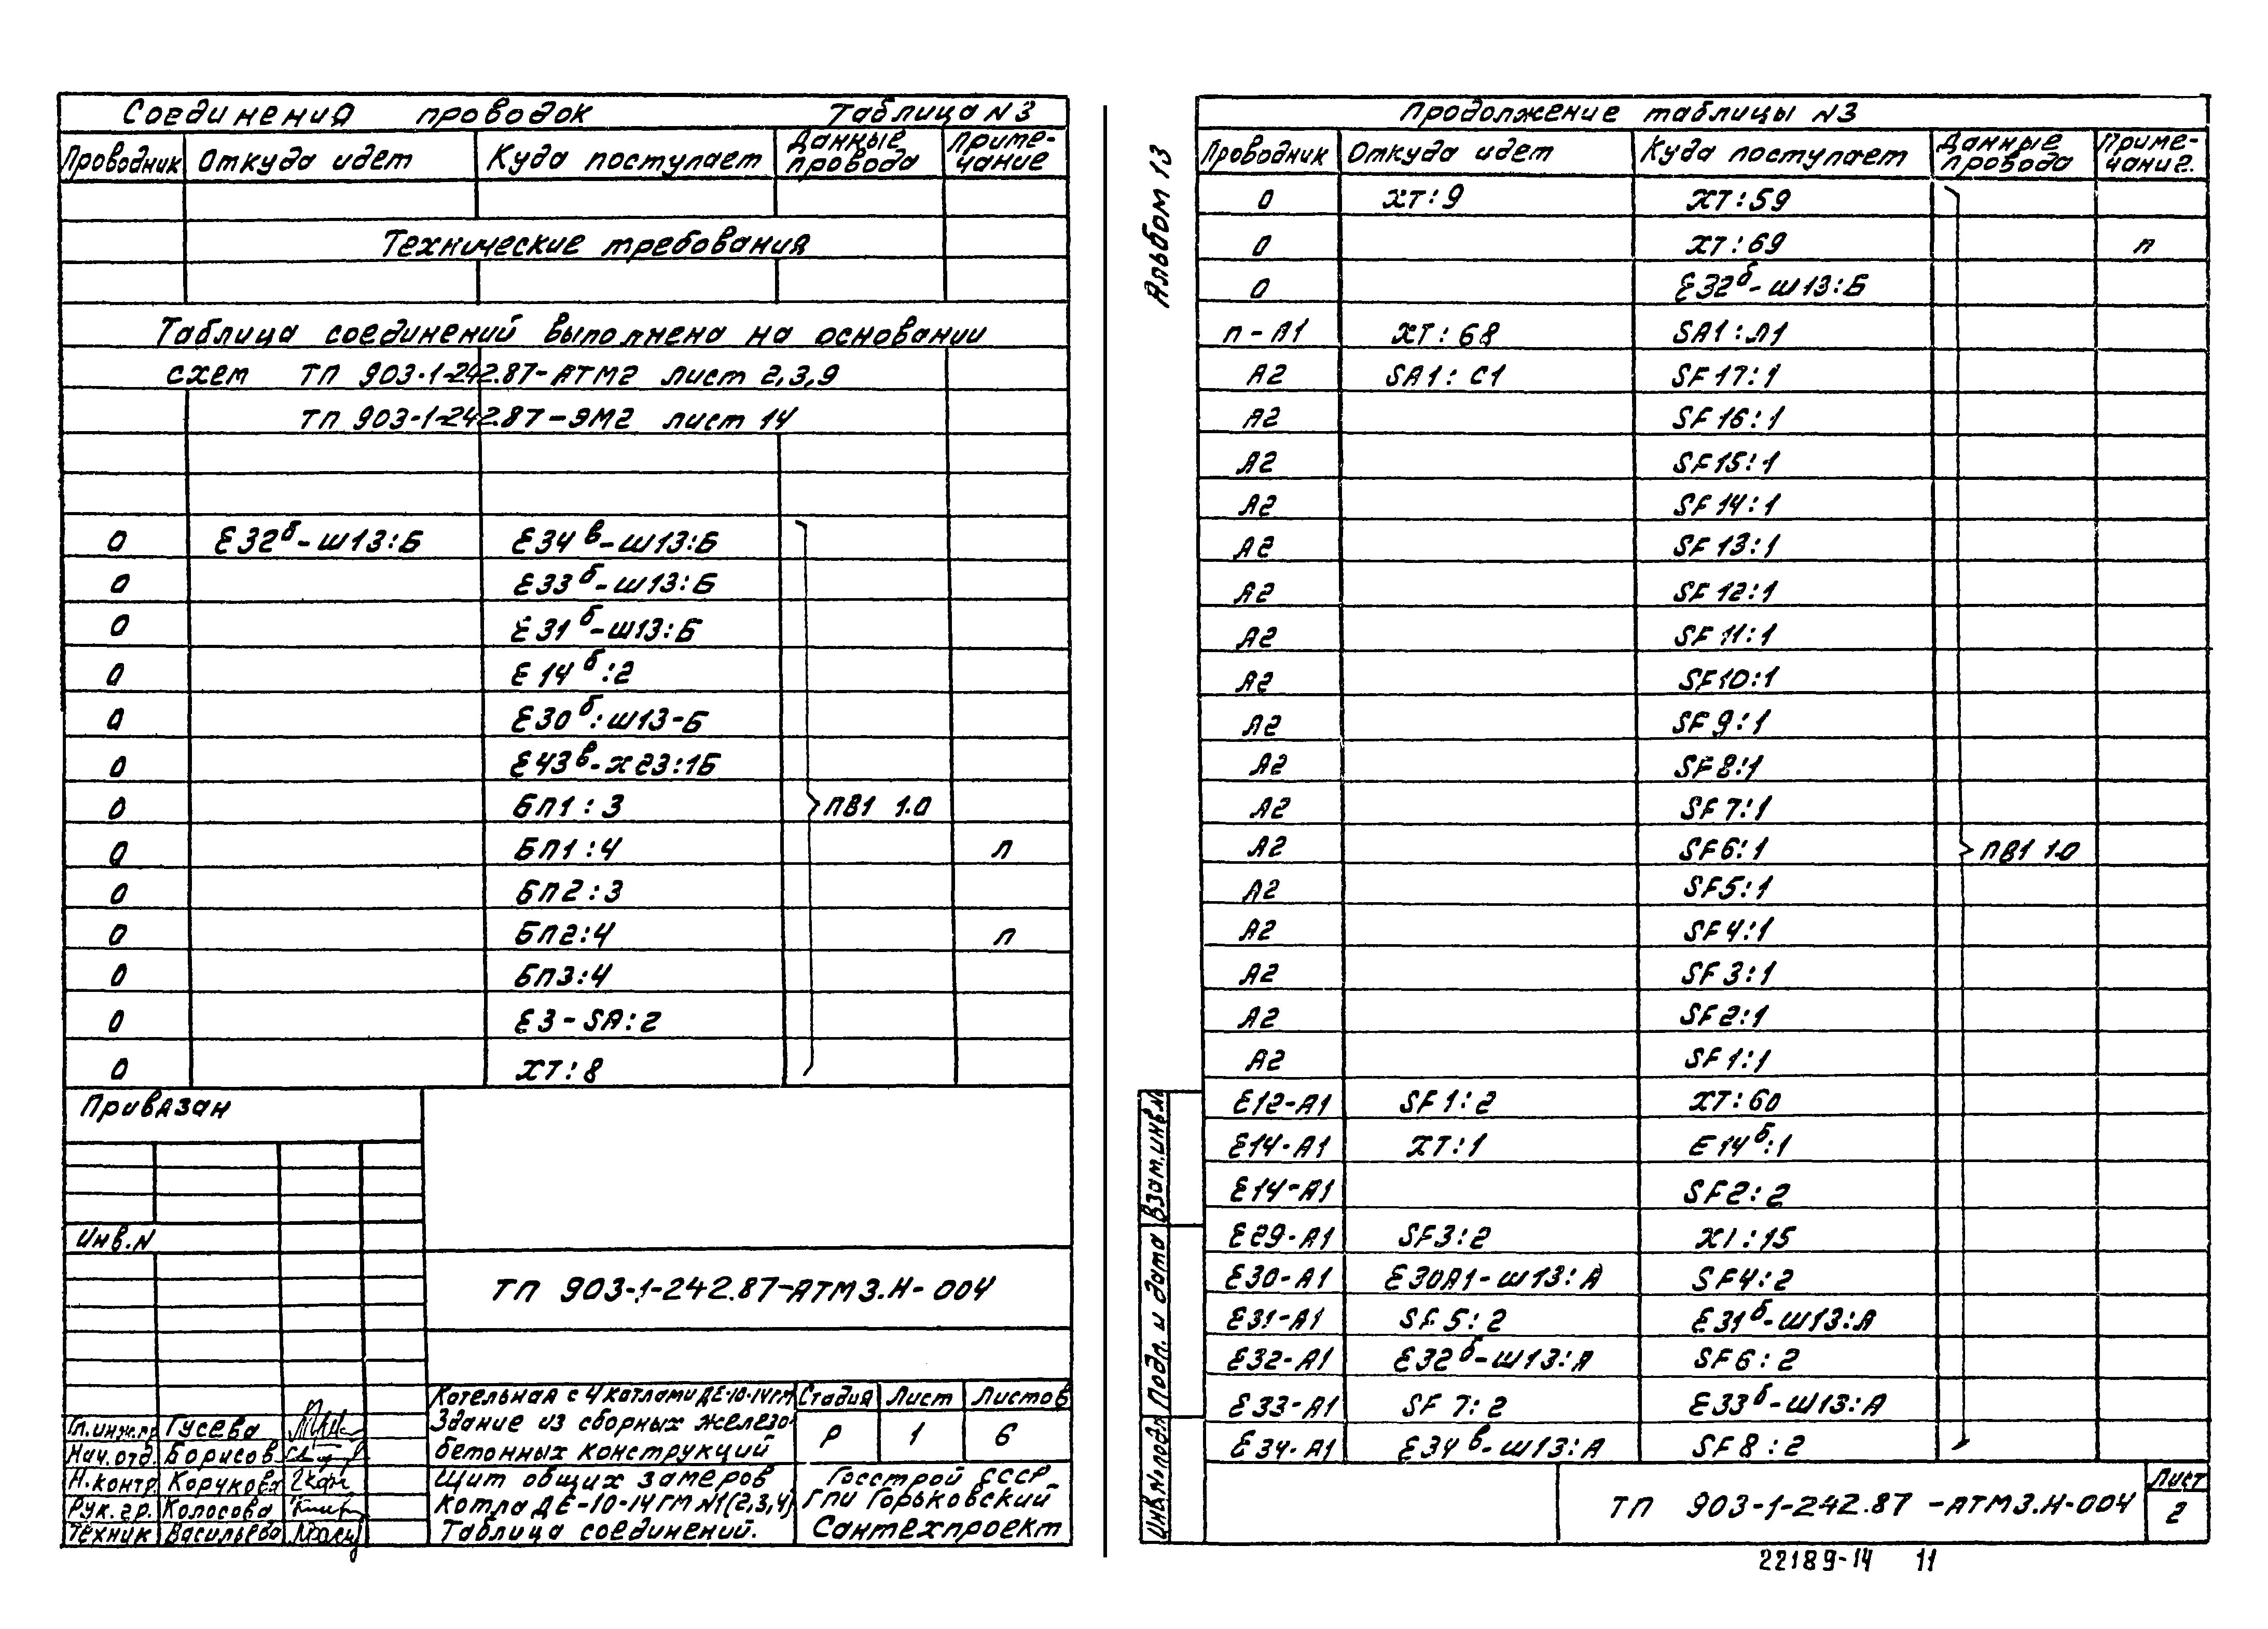 Соединения проводок Таблица N3
Проводник Откуда идет Куда поступает Данные провода Приме-чание
Технические требования
Таблица соединений выполнена на основании
схем ТП 903-1-242.87-АТМ2 лист 2,3,9
ТП 903-1-242.87-ЭМ2 лист 14
0 Е32б-Ш13:Б Е34в-Ш13:Б
0 Е33б-Ш13:Б
0 Е31б-Ш13:Б
0 Е14б:2
0 Е30б:Ш13-Б
0 Е43в-Х23:1Б
0 БП1:3 ПВ1 1.0
0 БП1:4 п
0 БП2:3
0 БП2:4 п
0 БП3:4
0 Е3-SA:2
0 ХТ:8
Привязан
Инв.N
ТП 903-1-242.87-АТМ3.Н-004
Котельная с 4 котлами ДЕ-10-14гм
Здание из сборных железо-
бетонных конструкций
Стадия Лист Листов
Р 1 6
Гл.инж.пр Гусева
Нач.отд. Борисов
Н.контр. Корчкова
Рук.гр. Колосова
Техник Васильева
Щит общих замеров
Котла ДЕ-10-14ГМ N1(2,3,4)
Таблица соединений.
Госстрой СССР
ГПИ Горьковский
Сантехпроект
Альбом 13
Продолжение таблицы N3
Проводник Откуда идет Куда поступает Данные провода Приме-чание.
0 ХТ:9 ХТ:59
0 ХТ:69 п
0 Е32б-Ш13:Б
п-А1 ХТ:68 SA1:Л1
А2 SA1:С1 SF17:1
А2 SF16:1
А2 SF15:1
А2 SF14:1
А2 SF13:1
А2 SF12:1
А2 SF11:1
А2 SF10:1
А2 SF9:1
А2 SF8:1
А2 SF7:1
А2 SF6:1 ПВ1 1.0
А2 SF5:1
А2 SF4:1
А2 SF3:1
А2 SF2:1
А2 SF1:1
Е12-А1 SF1:2 ХТ:60
Е14-А1 ХТ:1 Е14б:1
Е14-А1 SF2:2
Е29-А1 SF3:2 Х1:15
Е30-А1 Е30А1-Ш13:А SF4:2
Е31-А1 SF5:2 Е31б-Ш13:А
Е32-А1 Е32б-Ш13:А SF6:2
Е33-А1 SF7:2 Е33б-Ш13:А
Е34-А1 Е34в-Ш13:А SF8:2
Взам.инв.N
Подп. и дата
Инв.N подл.
ТП 903-1-242.87-АТМ3.Н-004
Лист
2
22189-14 11